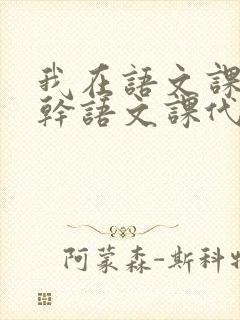 我在語文課
幹語文課代
阿蒙森-斯科特